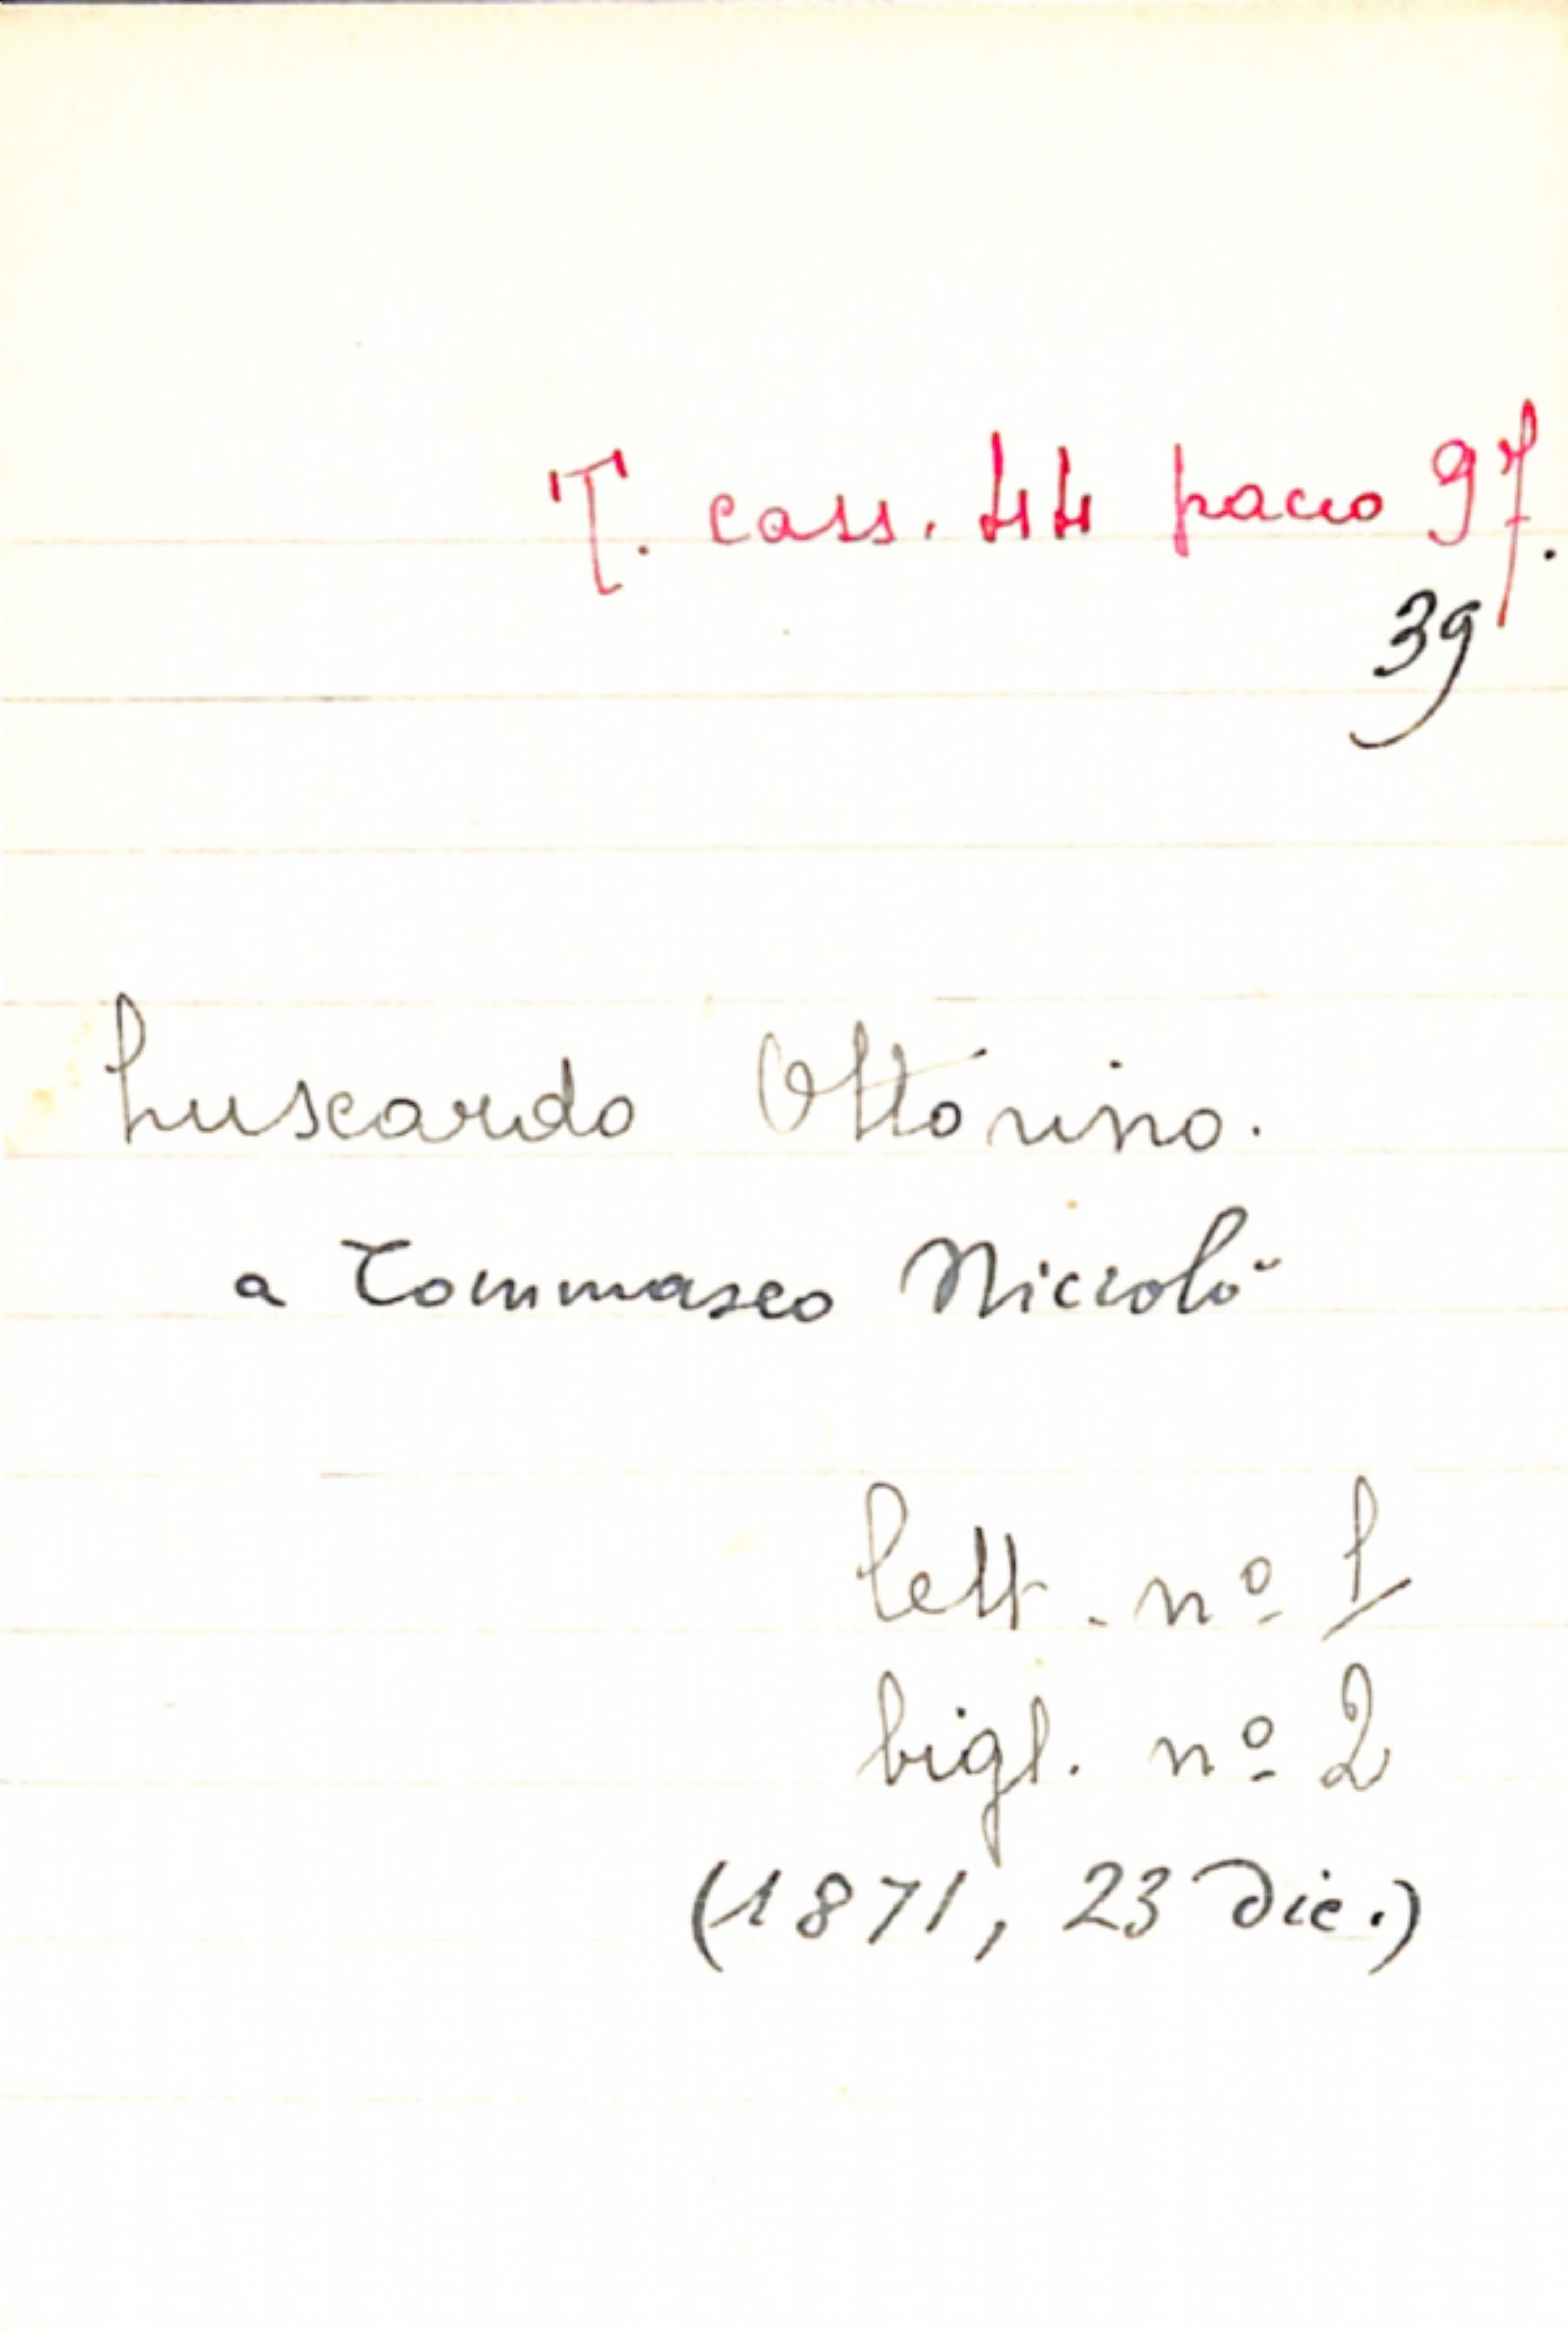 T. cass. 44 pacco 97.
39
Luscardo Ottorino.
a Tommaseo Niccolò
lett. nº 1
bigl. nº 2
(1871, 23 dic.)